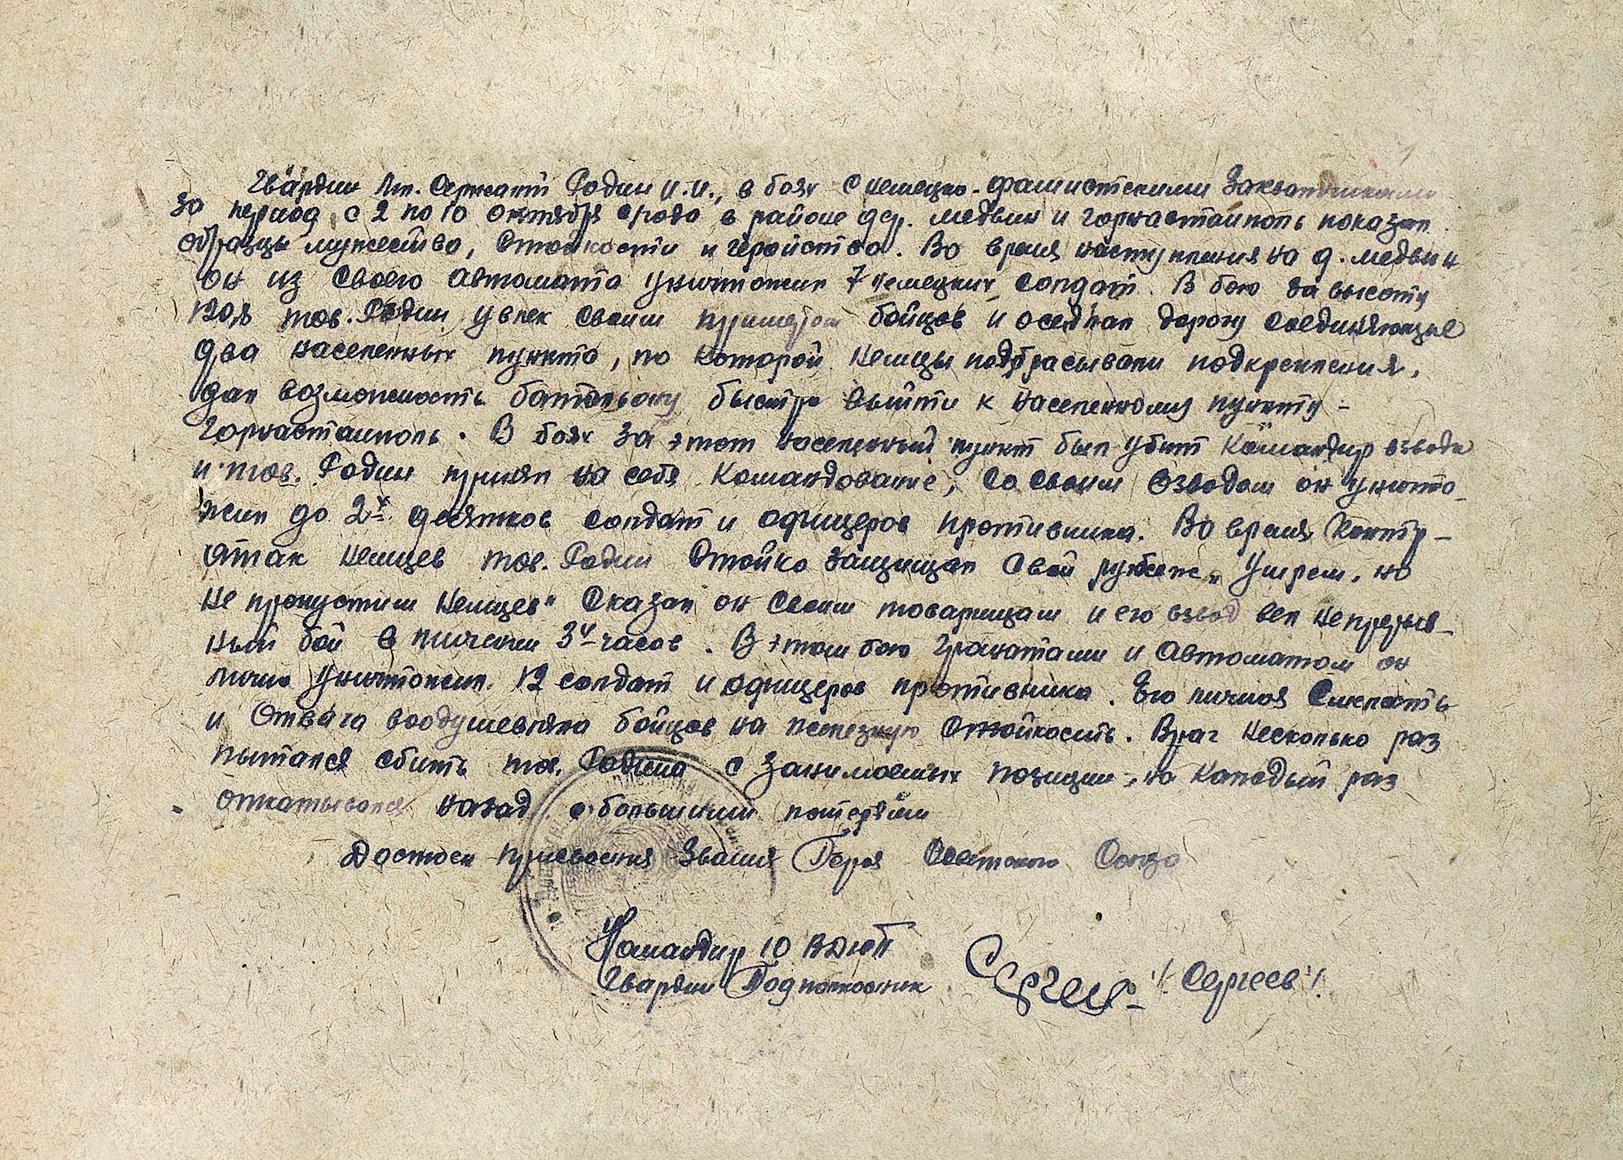 Гвардии Мл. Сержант Родин И.И., в боях с немецко-фашистскими Захватчиками
за период с 2 по 10 октября с/года в районе дер. медвин и горнастайполь показал
образцы мужества, Стойкости и геройства. Во время наступления на д. медвин
он из Своего автомата уничтожил 7 немецких солдат. В бою за высоту
120,8 тов. Родин увлек своим примером бойцов и оседлал дорогу соединяющие
два населенных пункта, по которой Немцы подбрасывали подкрепления,
дал возможность батальону быстро выйти к населенному пункту -
Горнастайполь. В боях за этот населенный пункт был убит Командир взвода
и тов. Родин принял на себя Командование, Со своим Взводом он уничто-
жил до 2х десятков солдат и офицеров противника. Во время Контр-
атак Немцев тов. Родин Стойко защищал Свой рубеж. „Умрем, но
Не пропустим Немцев" Сказал он Своим товарищам и его взвод вел Непрерыв-
ный бой в течении 3х часов. В этом бою Гранатами и Автоматом он
лично Уничтожил 12 солдат и офицеров противника. Его личная Смелость
и Отвага воодушевляла бойцов на железную Стойкость. Враг Несколько раз
Пытался сбить тов. Родина с Занимаемых позиций, но Каждый раз
Откатывался назад с большими потерями
Достоен присвоения Звания Героя Советского Союза
Командир 10 ВДСП
Гвардии Подполковник Сергеев /Сергеев/.